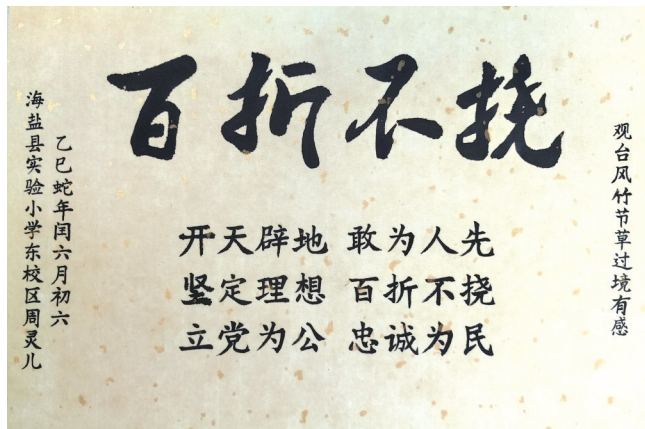 观台风竹节草过境有感
百折不挠
开天辟地 敢为人先
坚定理想 百折不挠
立党为公 忠诚为民
乙巳蛇年闰六月初六
海盐县实验小学东校区周灵儿